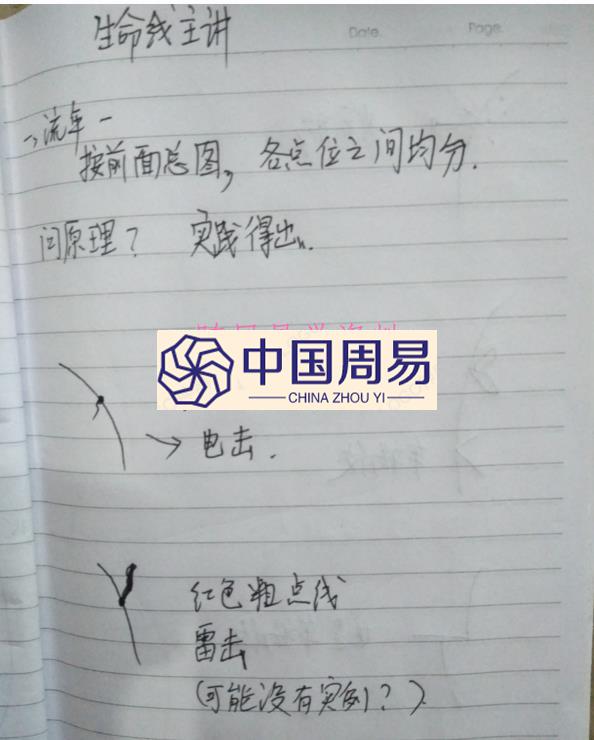 生命线主讲
Date.
Page.
一、流年一
按前面总图，各点位之间均分.
问原理？ 实践得出.
中国周易
CHINA ZHOU YI
→ 电击.
红色粗点线
雷击
(可能没有实例？)